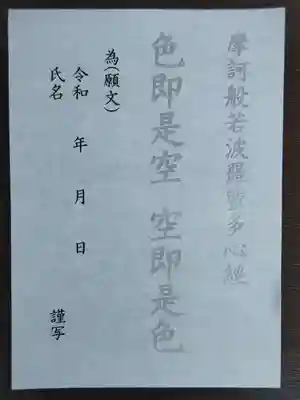 摩訶般若波羅蜜多心経
色即是空 空即是色
為(願文)
令和 年 月 日
氏名 謹写